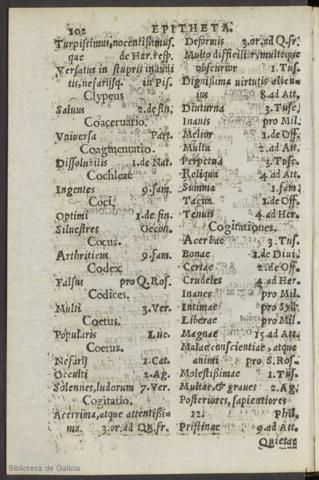 102 EPITHETA.
Turpissimus, nocentissimusque de Har. resp.
Versatus in stupris inauditis, nefarijsq. in Pis.
Clypeus
Saluus 2. de fin.
Coaceruatio.
Vniuersa Part.
Coagmentatio.
Dissolubilis 1. de Nat.
Cochleae
Ingentes 9. fam.
Coci.
Optimi 1. de fin.
Siluestres Oecon.
Cocus.
Arthriticus 9. fam.
Codex
Falsus pro Q. Ros.
Codices.
Multi 3. Ver.
Coetus.
Popularis Luc.
Coetus.
Nefarij 1. Cat.
Occulti 2. Ag.
Solennes, ludorum 7. Ver.
Cogitatio.
Acerrima, atque attentissima. 3. or. ad Qu. fr.
Deformis 3. or. ad Q. fr.
Multo difficilior, multoque obscurior 1. Tus.
Dignissima virtutis alicuius 8. ad Att.
Diuturna 3. Tusc.
Inanis pro Mil.
Melior 1. de Off.
Multa 2. ad Att.
Perpetua 3. Tusc.
Reliqua 4. ad Att.
Summa 1. fam.
Tacita 1. de Off.
Tenuis 4. ad Her.
Cogitationes.
Acerbae 3. Tus.
Bonae 1. de Diui.
Certae 2. de Off.
Crudeles 4. ad Her.
Inanes pro Mil.
Intimae pro Syll.
Liberae pro Mil.
Magnae 15. ad Att.
Malae conscientiae, atque animi pro S. Ros.
Molestissimae 1. Tus.
Multae, & graues 2. Ag.
Posteriores, sapientiores 12. Phil.
Pristinae 9. ad Att.
Quietae
Biblioteca de Galicia